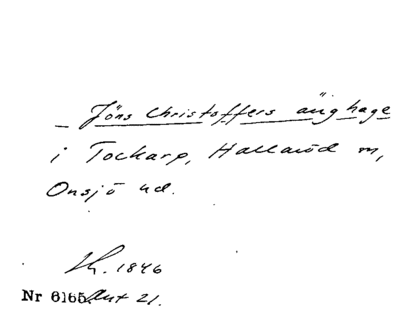 – Jöns Christoffers änghage
i Tockarp, Hallaröd sn,
Onsjö hd.
Lh. 1846
Nr 6165 Akt 21.